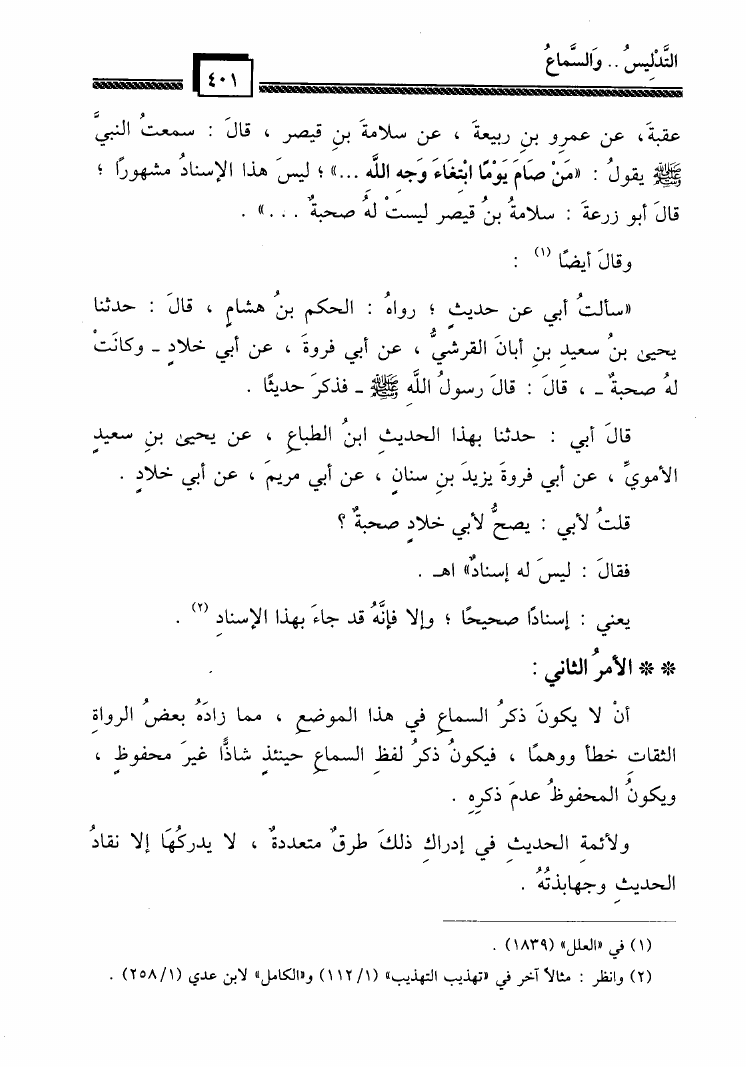 التَّدْلِيسُ .. والسَّماعُ
٤٠١
عقبةَ، عن عمرِو بنِ ربيعةَ ، عن سلامةَ بنِ قيصر ، قالَ : سمعتُ النبيَّ
ﷺ يقولُ : «مَنْ صَامَ يَوْمًا ابْتِغَاءَ وَجهِ اللَّهِ ...» ؛ ليسَ هذا الإسنادُ مشهورًا ؛
قالَ أبو زرعةَ : سلامةُ بنُ قيصر ليستْ لهُ صحبةٌ . . .» .
وقالَ أيضًا (١) :
«سألتُ أبي عن حديثٍ ؛ رواهُ : الحكم بنُ هشامٍ ، قالَ : حدثنا
يحيىٰ بنُ سعيدِ بنِ أبانَ القرشيُّ ، عن أبي فروةَ ، عن أبي خلادٍ ـ وكانَتْ
لهُ صحبةٌ ـ ، قالَ : قالَ رسولُ اللَّهِ ﷺ ـ فذكرَ حديثًا .
قالَ أبي : حدثنا بهذا الحديثِ ابنُ الطباعِ ، عن يحيىٰ بنِ سعيدٍ
الأمويِّ ، عن أبي فروةَ يزيدَ بنِ سنانٍ ، عن أبي مريمَ ، عن أبي خلادٍ .
قلتُ لأبي : يصحُّ لأبي خلادٍ صحبةٌ ؟
فقالَ : ليسَ له إسنادٌ» اهـ .
يعني : إسنادًا صحيحًا ؛ وإلا فإنَّهُ قد جاءَ بهذا الإسنادِ (٢) .
** الأمرُ الثاني :
أنْ لا يكونَ ذكرُ السماعِ في هذا الموضعِ ، مما زادَهُ بعضُ الرواةِ
الثقاتِ خطأً ووهمًا ، فيكونُ ذكرُ لفظِ السماعِ حينئذٍ شاذًّا غيرَ محفوظٍ ،
ويكونُ المحفوظُ عدمَ ذكرِهِ .
ولأئمةِ الحديثِ في إدراكِ ذلكَ طرقٌ متعددةٌ ، لا يدركُهَا إلا نقادُ
الحديثِ وجهابذتُهُ .
(١) في «العلل» (١٨٣٩) .
(٢) وانظر : مثالاً آخر في «تهذيب التهذيب» (١١٢/١) و«الكامل» لابن عدي (٢٥٨/١) .